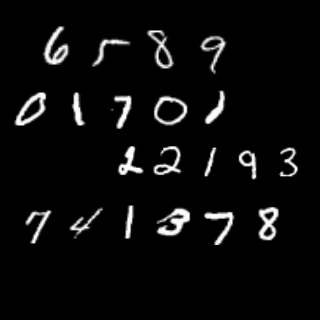 6589
01701
22193
741378